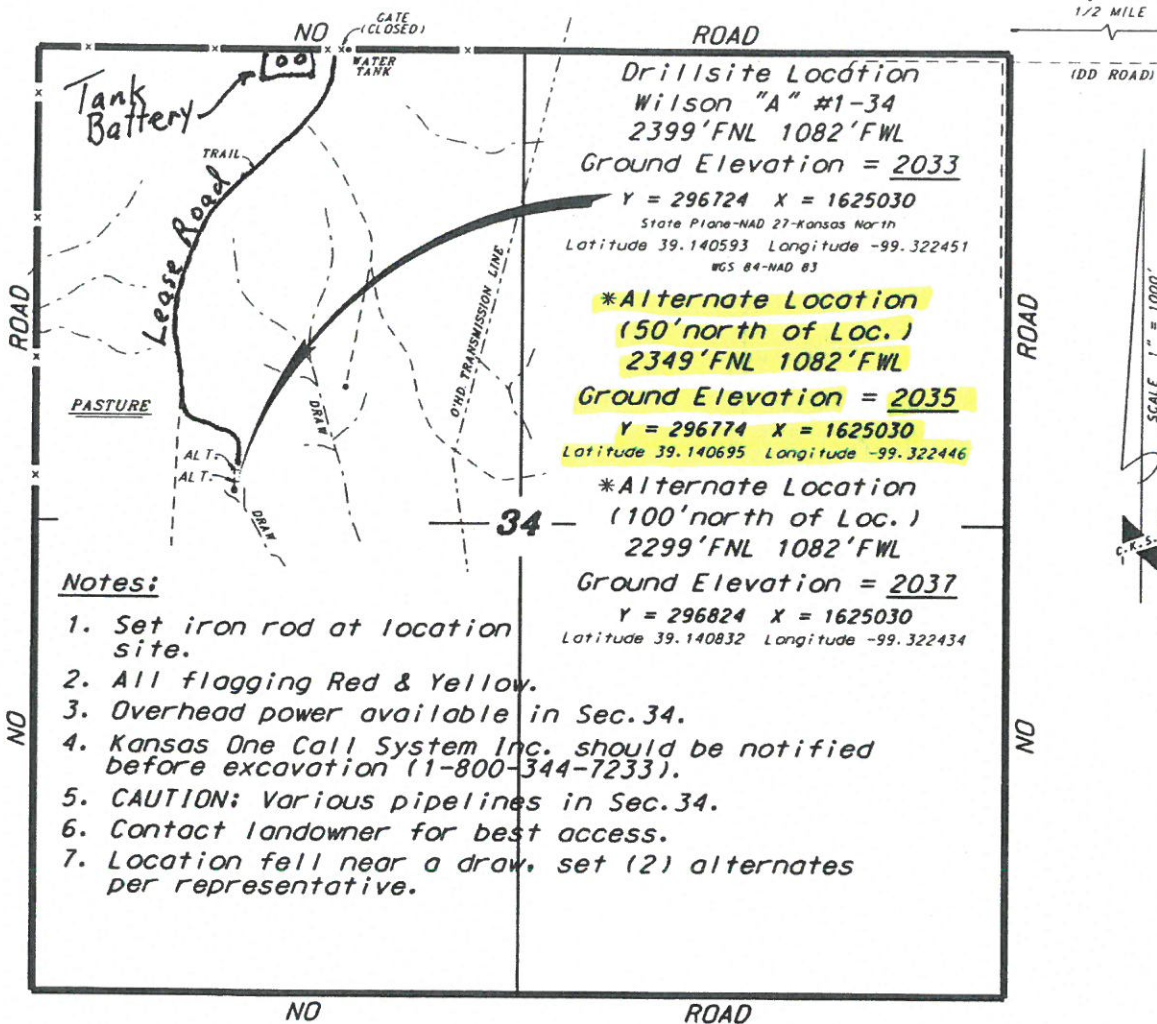 1/2 MILE
(DD ROAD)
NO
GATE
(CLOSED)
ROAD
WATER
TANK
Tank
Battery
TRAIL
Lease Road
ROAD
PASTURE
ALT.
ALT.
DRAW
DRAW
O'HD. TRANSMISSION LINE
Drillsite Location
Wilson "A" #1-34
2399'FNL 1082'FWL
Ground Elevation = 2033
Y = 296724 X = 1625030
State Plane-NAD 27-Kansas North
Latitude 39.140593 Longitude -99.322451
WGS 84-NAD 83
*Alternate Location
(50'north of Loc.)
2349'FNL 1082'FWL
Ground Elevation = 2035
Y = 296774 X = 1625030
Latitude 39.140695 Longitude -99.322446
*Alternate Location
(100'north of Loc.)
2299'FNL 1082'FWL
Ground Elevation = 2037
Y = 296824 X = 1625030
Latitude 39.140832 Longitude -99.322434
34
ROAD
SCALE 1" = 1000'
C.K.S.
Notes:
1. Set iron rod at location
site.
2. All flagging Red & Yellow.
3. Overhead power available in Sec.34.
4. Kansas One Call System Inc. should be notified
before excavation (1-800-344-7233).
5. CAUTION: Various pipelines in Sec.34.
6. Contact landowner for best access.
7. Location fell near a draw, set (2) alternates
per representative.
NO
NO
NO
ROAD